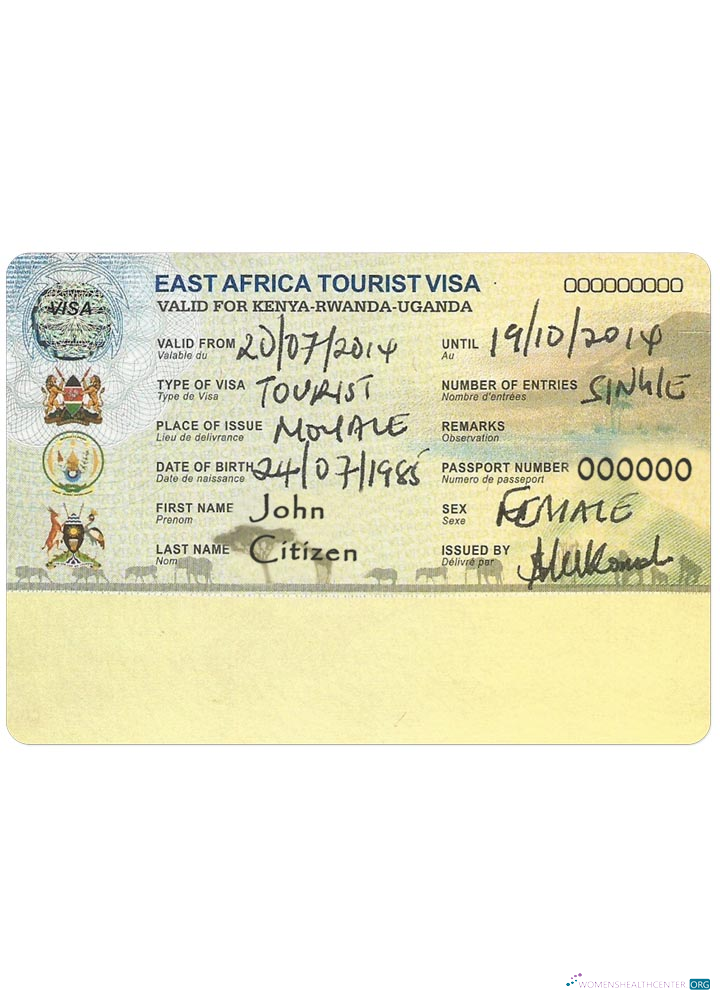 EAST AFRICA TOURIST VISA 000000000
VISA
VALID FOR KENYA-RWANDA-UGANDA
VALID FROM 20/07/2014 UNTIL 19/10/2014
Valable du Au
TYPE OF VISA TOURIST NUMBER OF ENTRIES SINGLE
Type de Visa Nombre d'entrées
PLACE OF ISSUE MOYALE REMARKS
Lieu de delivrance Observation
DATE OF BIRTH 24/07/1985 PASSPORT NUMBER 000000
Date de naissance Numero de passeport
FIRST NAME John SEX FEMALE
Prenom Sexe
LAST NAME Citizen ISSUED BY
Nom Délivré par
WOMENSHEALTHCENTER.ORG